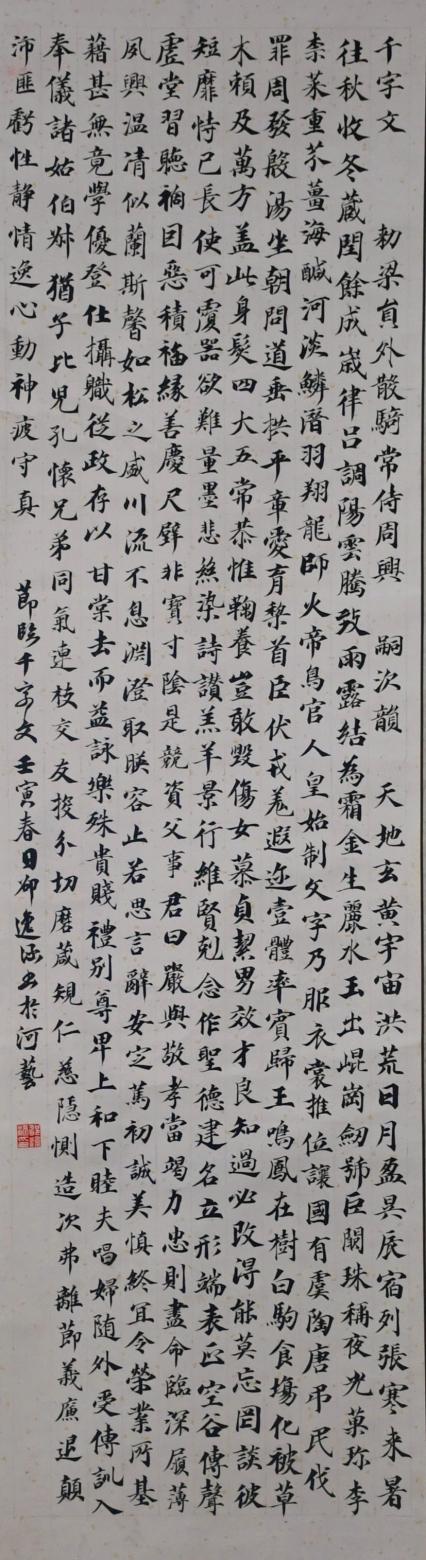 千字文 勑梁員外散騎常侍周興 嗣次韻 天地玄黄宇宙洪荒日月盈昃辰宿列張寒来暑
往秋收冬蔵閏餘成歳律吕調陽雲騰致雨露結為霜金生麗水玉出崐崗劒號巨闕珠稱夜光菓珎李
柰菜重芥薑海鹹河淡鱗潛羽翔龍師火帝鳥官人皇始制文字乃服衣裳推位讓國有虞陶唐弔民伐
罪周發殷湯坐朝問道垂拱平章愛育黎首臣伏戎羌遐迩壹體率賓歸王鳴鳳在樹白駒食塲化被草
木頼及萬方盖此身髮四大五常恭惟鞠養豈敢毀傷女慕貞絜男效才良知過必改得能莫忘罔談彼
短靡恃己長使可覆器欲難量墨悲絲染詩讃羔羊景行維賢剋念作聖德建名立形端表正空谷傳聲
虚堂習聽禍因惡積福縁善慶尺璧非寶寸陰是競資父事君曰嚴與敬孝當竭力忠則盡命臨深履薄
夙興温凊似蘭斯馨如松之盛川流不息淵澄取暎容止若思言辭安定篤初誠美慎終宜令榮業所基
藉甚無竟學優登仕攝職従政存以甘棠去而益詠樂殊貴賤禮别尊卑上和下睦夫唱婦随外受傅訓入
奉儀諸姑伯叔猶子比兒孔懷兄弟同氣連枝交友投分切磨葴規仁慈隱惻造次弗離節義廉退顛
沛匪虧性静情逸心動神疲守真 節臨千字文壬寅春日 書於河藝